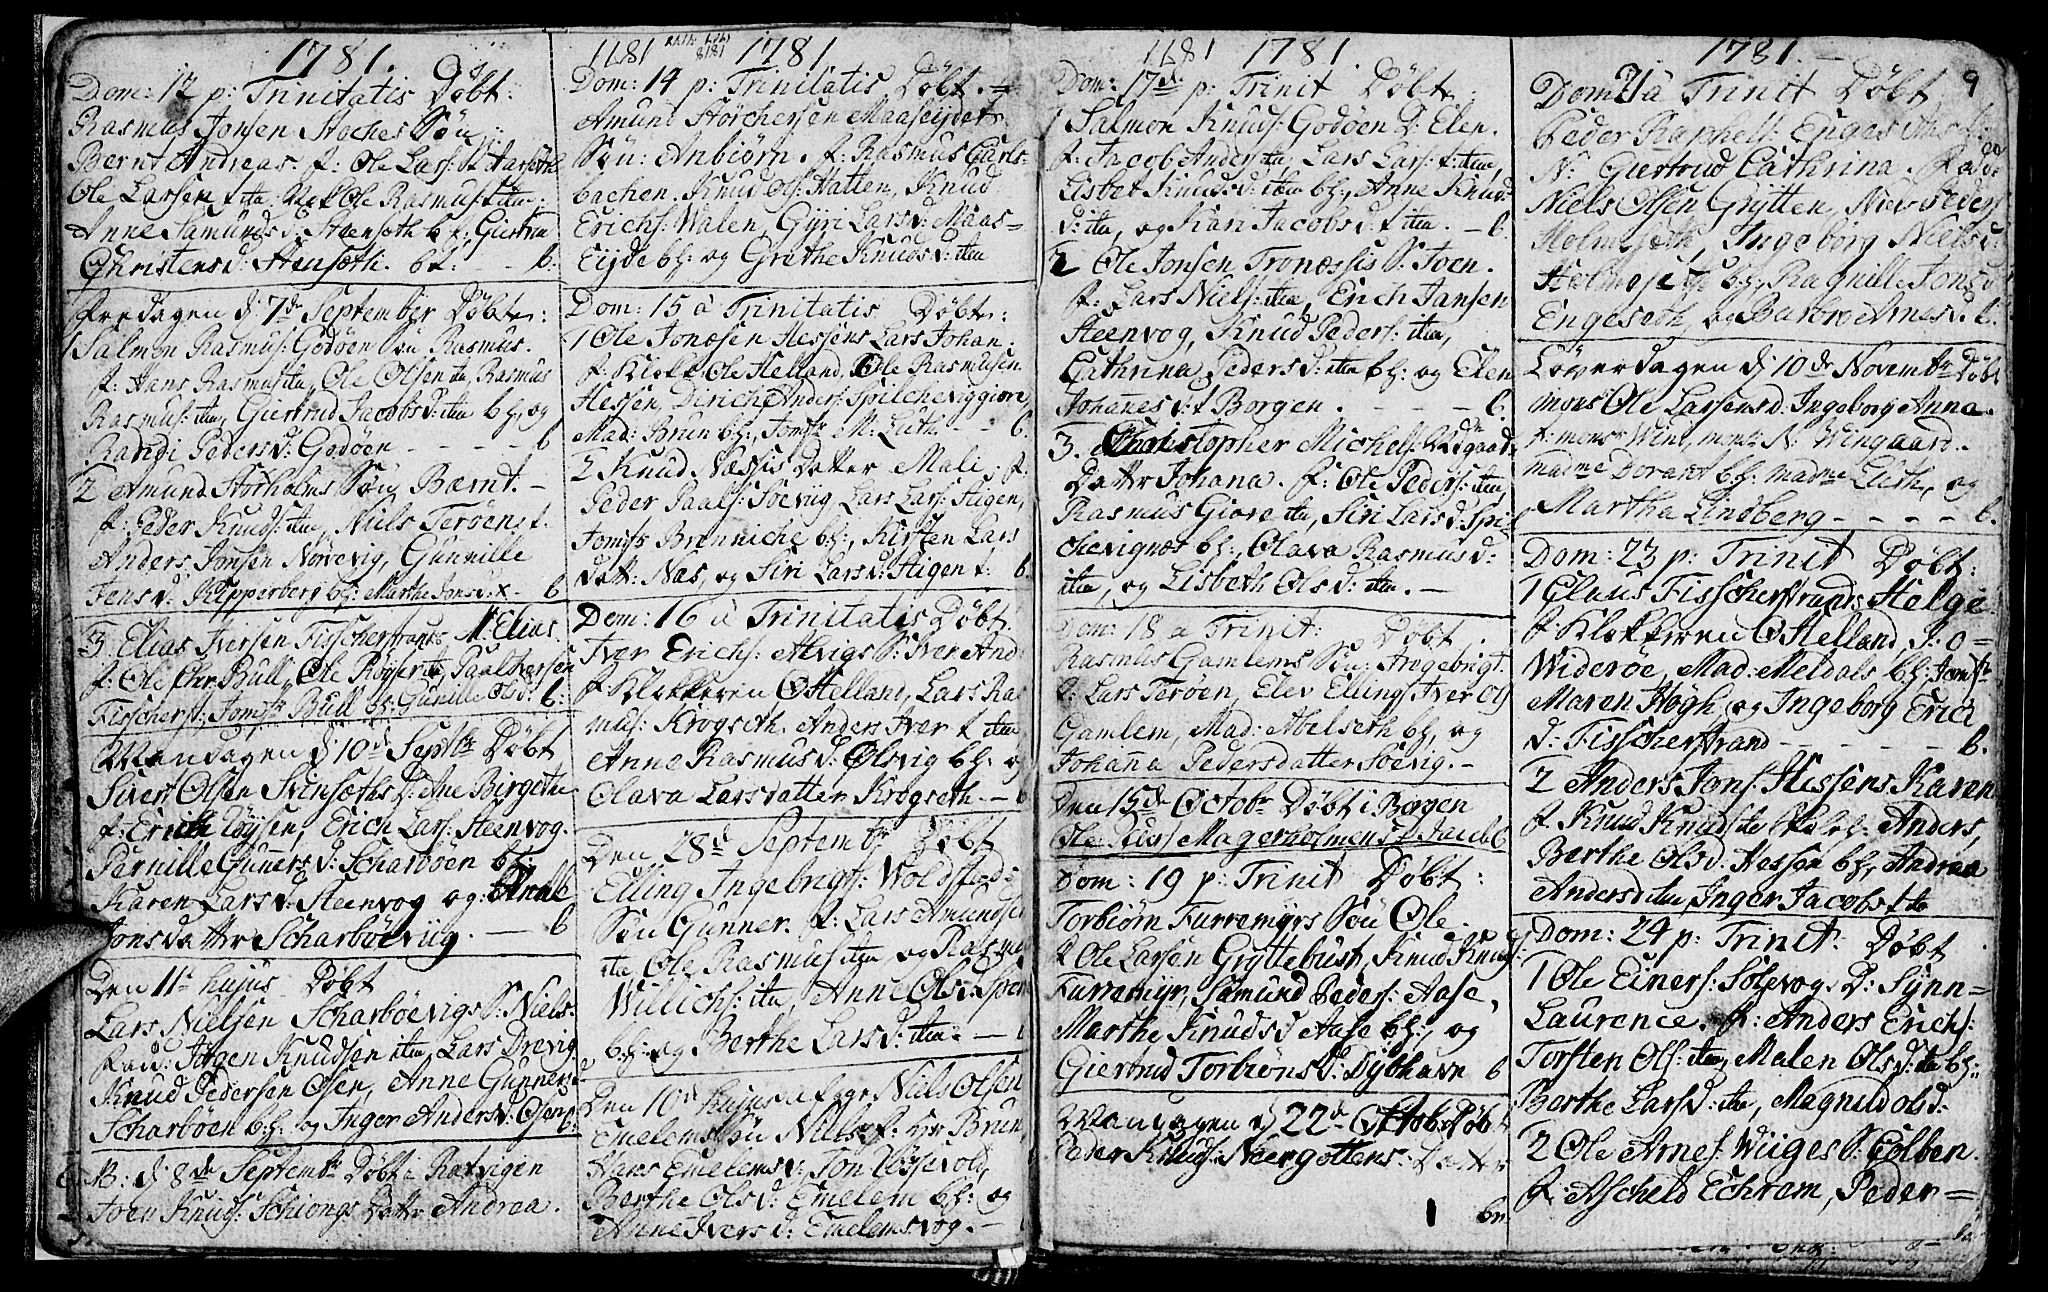 1781.
Dom: 12 p: Trinitatis Døbt:
Rasmus Jonsen Staches Søn:
Bernt Andreas. f: Ole Lars:
Ole Larsen Ole Rasmus: itm:
Anne Samunds d: Steensæth bh: Giertrud
Christens d: Stensæth. - - b:
Fredagen d: 7de September Døbt:
1 Salmon Rasmus: Godøen Søn Rasmus.
f: Hans Rasmus: itm, Ole Olsen itm, Rasmus
Rasmus: itm, Giertrud Jacobs d: itm bh: og
Randi Peders d: Godøen - - - - b
2 Amund Storholms Søn Bærnt. -
f: Peder Knuds: itm, Niels Terøen t.
Anders Jonsen Norvevig, Gunnille
Jens d: Kipperberg bh: Marthe Jons d: t. - b
3 Elias Iversen Fisscherstrands N: Elias.
f: Ole Chr Bull, Ole Røyser itm Paal Iversen
Fisscherst: Jomfr Bull bh: Gunille Ols d: b:
Mandagen d 10d Septbr Døbt
Sivert Olsen Svinsæths D: Ane Birgethe
f: Erich Tøysen, Erich Lars: Steenvog.
Pernille Gunners d: Scharbøen bh:
Karen Lars d: Steenvog og:
Jonsdatter Scharbøevig. - b
Den 11t hujus Døbt
Lars Nielsen Scharbøevigs S: Niels.
Fad: Jørgen Knudsen itm, Lars Drevig
Knud Pedersen Osen, Anne Gunners d:
Scharbøen bh: og Inger Anders d: Osen b:
N: d 8de Septembr Døbt i Ratvigen
Joen Knuds: Schiongs Datter Andrea.
1781
1781
Dom: 14 p: Trinitatis Døbt.
Amund Storchersen Maaseijdes
Søn: Anbiørn. f: Rasmus Gurls-
bachen. Knud Ols: Hatlen, Knud
Erichs: Walen, Gÿri Lars d: Maas=
Eijde bh: og Grethe Knuds d: itm
Dom: 15 à Trinitatis Døbt:
1 Ole Jonæsen Hessens Lars Johan.
f: Klokk: Ole Helland, Ole Rasmusen
Hessen, Diriche Anders: Spilcheviggiore,
Mad: Brun bh:, Jomfr M: Luth. - - b.
2 Knud Næssis Datter Mali. f:
Peder Paals: Søeviig Lars Lars: Stigen,
Jomfr Brønniche bh:, Kirsten Lars
datt: Næs, og Siri Lars d: Stigen t: b.
Dom: 16 à Trinitatis Døbt.
Iver Erichs: Alvigs S: Iver And
f. Klokkeren O Hellam, Lars Ras
mus: Krogseth. Anders Iver t itm
Anne Rasmus d: Olsvig bh: og
Olava Larsdatter Krogseth - b
Den 28d Septembr Døbt
Elling Ingebrigts: Woldsfed:
Søn Gunner. f: Lars Amunds
itm, Ole Rasmus: itm, og Rasmus
Willichs: itm, Anne Ols d:
bh: og Berthe Lars d: itm. -
Den 10d hujus Niels Olsen
Emelems Søn Niels f: Hr Brun
Hans Emelems v: Jon
Berthe Ols d: Emelem bh: og
Anne Ivers d: Emelemsvog. -
1781
1781.
Dom: 17de p: Trinit Døbt.
1 Salmon Knuds: Godøen D: Elen.
f: Jacob Anders: itm, Lars Lars: t: itm,
Lisbet Knuds d: itm bh:, Anne Knuds
d: itm, og Kari Jacobs d: t itm. - b.
2 Ole Jonsen Tronæssis S: Joen.
f: Lars Niels: itm, Erich Jansen
Steenvog, Knud Peders: itm,
Cathrina Peders d: itm bh: og Elen
Johannes d: t Borgen. - - - b.
3. Christopher Michels: Wedgaards
Dattr Johana. f: Ole Peders: itm,
Rasmus Giøre itm, Siri Lars d: Spil
chevignæs bh:, Olava Rasmus d:
itm, og Lisbeth Ols d: itm. -
Dom: 18 a Trinit: Døbt.
Rasmus Gamlems Søn: Ingebrigt.
f: Lars Terøen, Elev Ellings: Iver Ols
Gamlem, Mad: Abelseth bh:, og
Johana Pedersdatter Søevig. -
Den 15de Octobr Døbt i Borgen
Ole Peders: Magerholmens S: Jacob b
Dom: 19 p: Trinit Døbt:
Torbiørn Furremÿrs Søn Ole.
f Ole Larsen Grÿttebust, Knud Knuds:
Furremÿr, Samund Peders: Aase,
Marthe Knuds d Aase bh:, og
Giertrud Torbiøns d: Dÿbhavn b
Mandagen d 22de Octobr Døbt
Peder Knuds: Neergottens: Datter
1781.
9
Dom: 21 à Trinit Døbt
Peder Raphells: Enges
N: Giertrud Cathrina. Fadd:
Niels Olsen Grÿtten, Niels Peders
Holmeseth, Ingeborg Niels d:
Holmesæth bh: Ragnille Jons d
Engeseth og Barbro Arnes d. b.
Løverdagen d 10de Novembr Døbt
mons: Ole Larsens d: Ingeborg Anna.
f: mons: Wind, mons: N: Wingaard.
madme Dorant bh: madme Luth, og
Martha Lindberg - - - - b.
Dom: 23 p: Trinit Døbt:
1 Claus Fisscherstrands Helge
f. Klokkeren O Helland, P: O=
Widerøe, Mad: Meldals bh: Jomfr
Maren Høgh, og Ingeborg Erich
d: Fisscherstrand - - - - b.
2 Anders Jons: Hessens Karen
f. Knud Knuds: itm Anders,
Berthe Ols d: Hessen bh, Andrea
Anders d itm, Inger Jacobs d itm
Dom: 24 p: Trinit. Døbt
1 Ole Einers: Solevogs D: Synn=
Laurence. f: Anders Erichs:
Torsten Ols: itm, Malen Ols d: itm bh:
Berthe Lars d: itm, Magnild Ols d:
2 Ole Arnes: Wiiges S: Colben.
f: Ascheld Echrem, Peder=